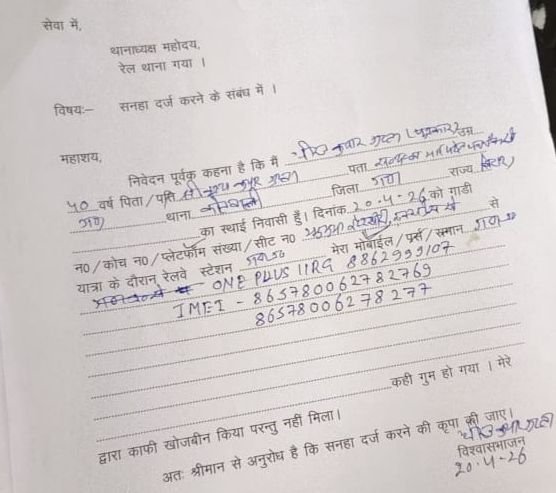 सेवा में,
थानाध्यक्ष महोदय,
रेल थाना गया ।
विषय:- सनहा दर्ज करने के संबंध में ।
महाशय,
निवेदन पूर्वक कहना है कि मैं कुमार गुप्ता (पत्रकार) उम्र
५० वर्ष पिता/पति श्री गुप्ता पता
गया थाना कोतवाली जिला गया राज्य बिहार
का स्थाई निवासी हूँ। दिनांक 20.4-26 को गाडी
न०/कोच न०/प्लेटफॉम संख्या/सीट न० से
यात्रा के दौरान रेलवे स्टेशन गया मेरा मोबाईल/पर्स/समान
ONE PLUS 11RG 8862999107
IMEI - 865780062782769
86578006278277
कही गुम हो गया । मेरे
द्वारा काफी खोजबीन किया परन्तु नहीं मिला।
अतः श्रीमान से अनुरोध है कि सनहा दर्ज करने की कृपा की जाए।
विश्वासभाजन
20-4-26